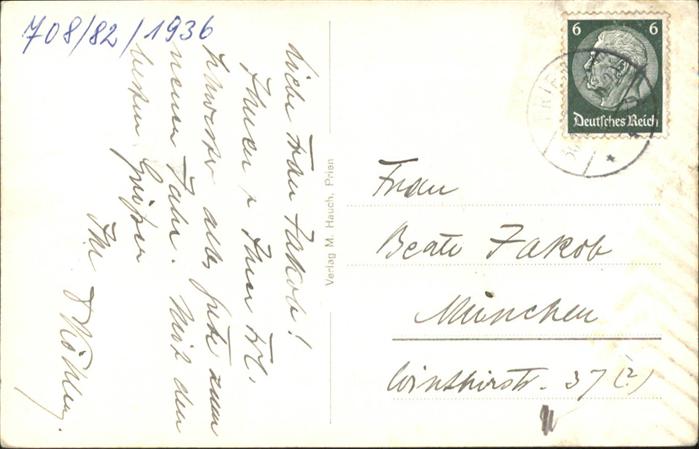 708/82/1936
Liebe Frau Jakob!
Ihnen u Ihrer Frl.
Schwester alles Gute zum
neuen Jahr. Mit den
besten Grüßen
Ihr
Verlag M. Hauch, Prien
6 6
Deutsches Reich
Frau
Beate Jakob
München
Winthirstr. 37 (?)